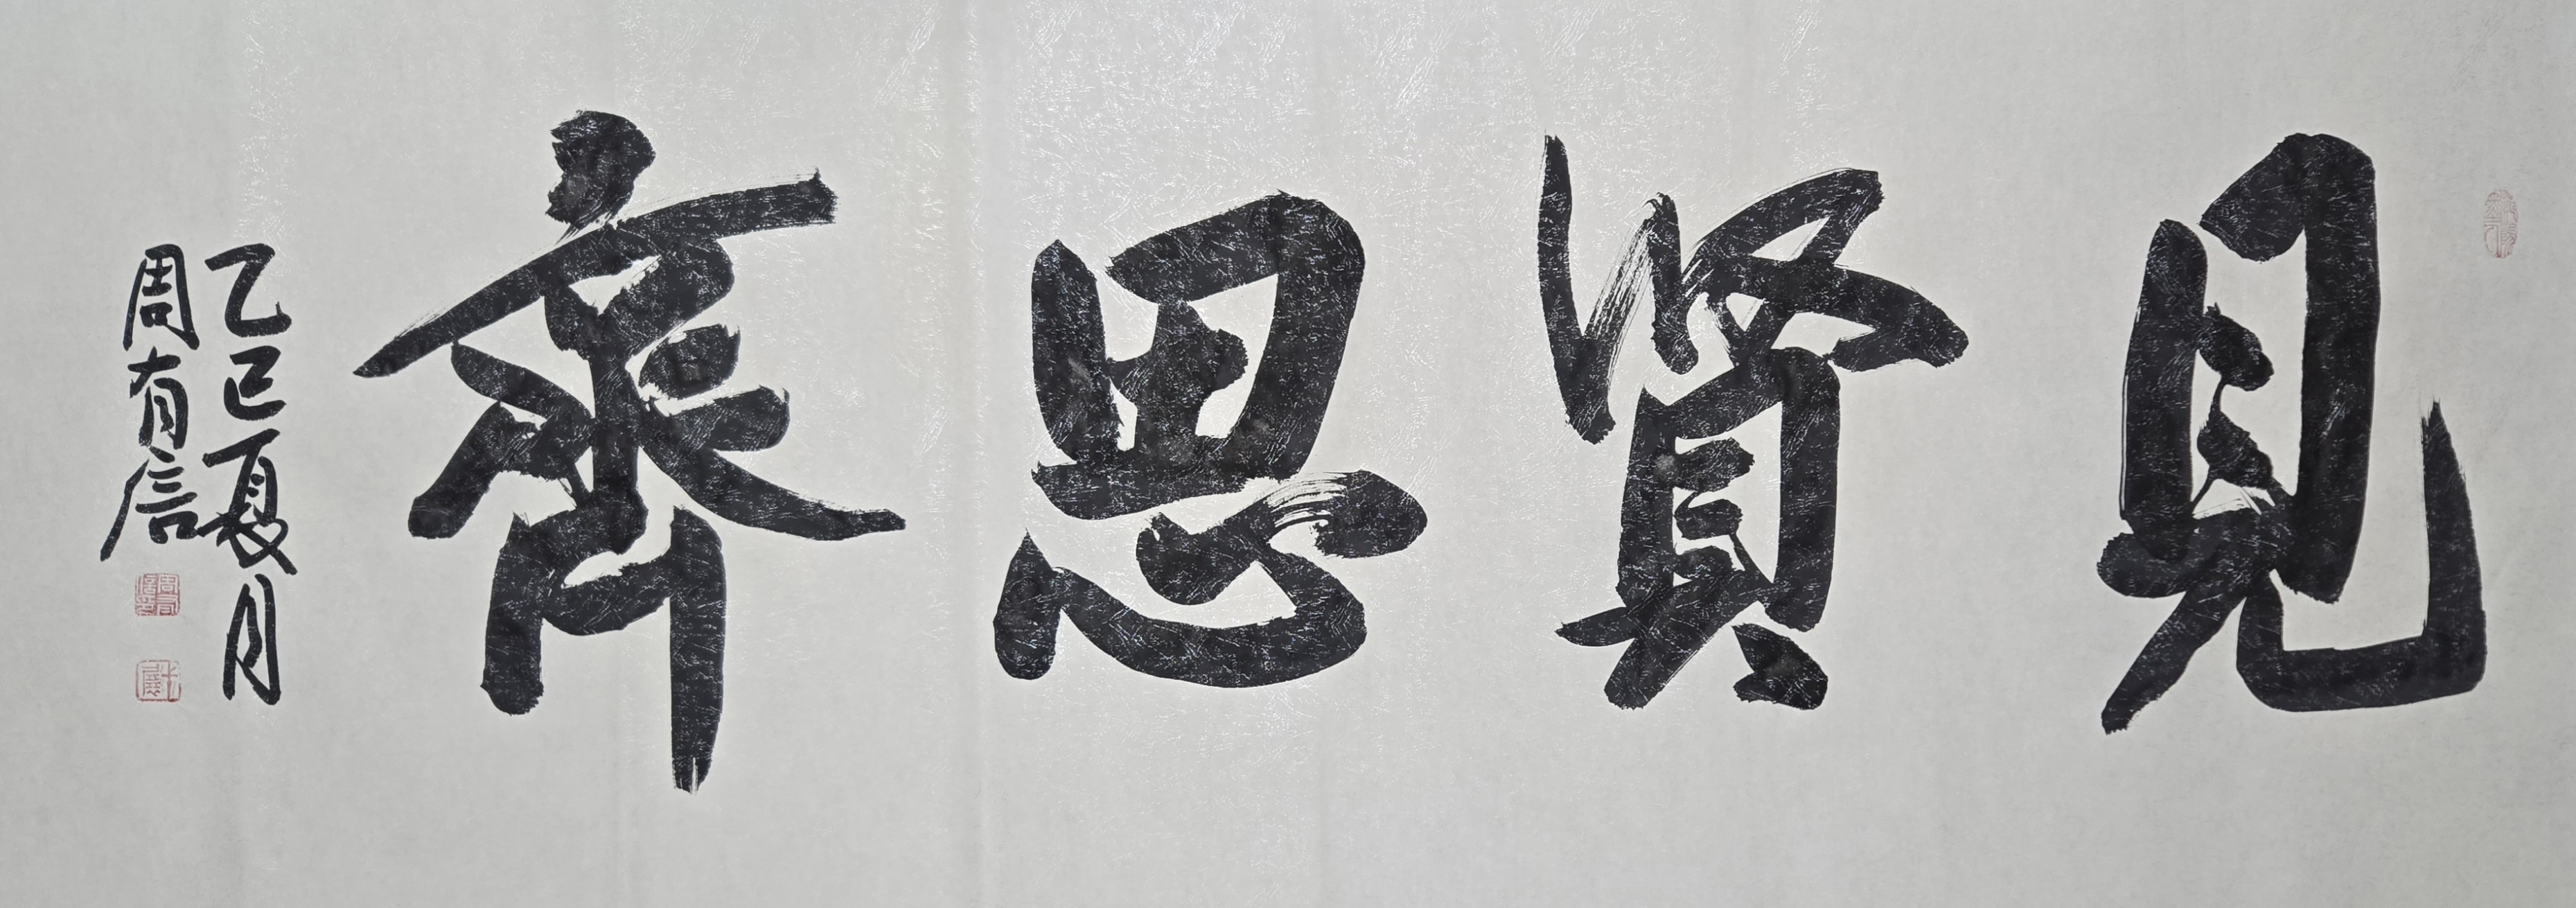 見賢思齊
乙巳夏月
周有信